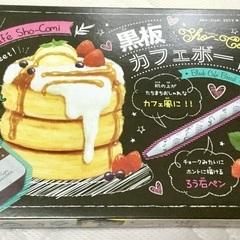 fé Sho-Comi
黒板
カフェボー
Black Cafe Board
机の上が
たちまちおしゃれな
カフェ風に!!
チョークみたいに
ホントに描ける
ろう石ペン